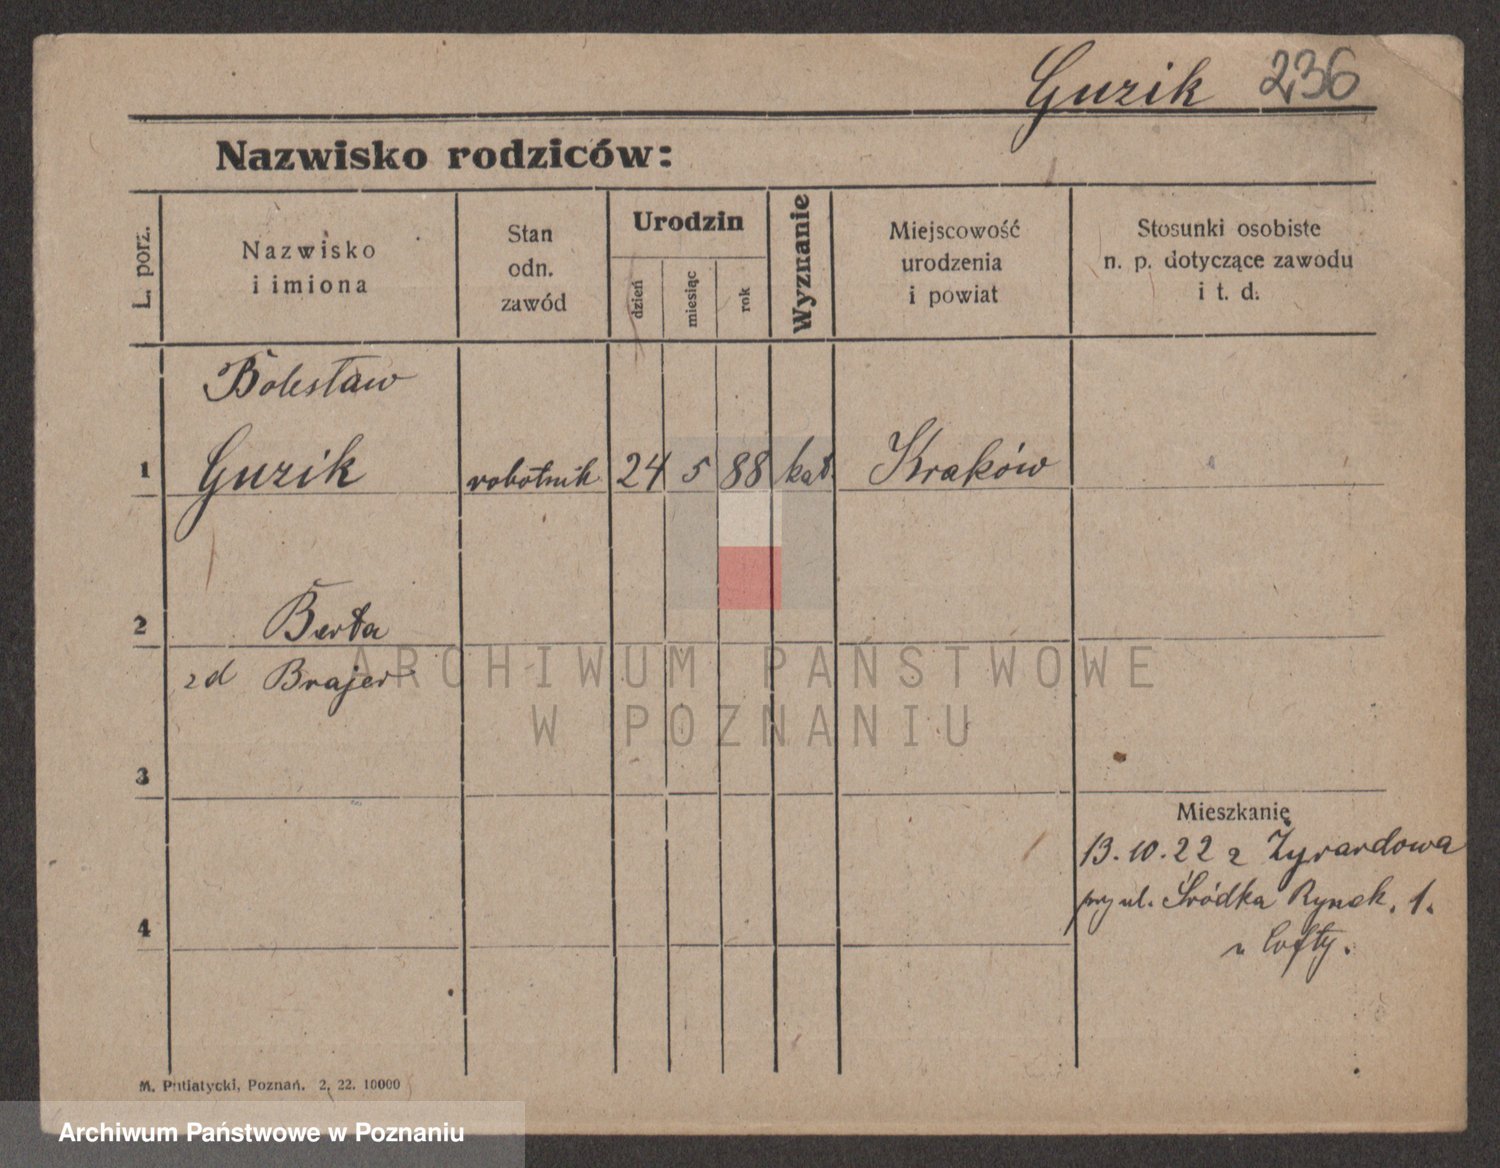 Guzik 236
Nazwisko rodziców:
L. porz.
Nazwisko
i imiona
Stan
odn.
zawód
Urodzin
dzień
miesiąc
rok
Wyznanie
Miejscowość
urodzenia
i powiat
Stosunki osobiste
n. p. dotyczące zawodu
i t. d.
Bolesław
1 Guzik robotnik 24 5 88 kat. Kraków
2 Berta
zd Brajer
3
Mieszkanie
13.10.22 z Żyrardowa
przy ul. Śródka Rynek. 1.
4
u
M. Putiatycki, Poznań. 2. 22. 10000
ARCHIWUM PAŃSTWOWE
W POZNANIU
Archiwum Państwowe w Poznaniu